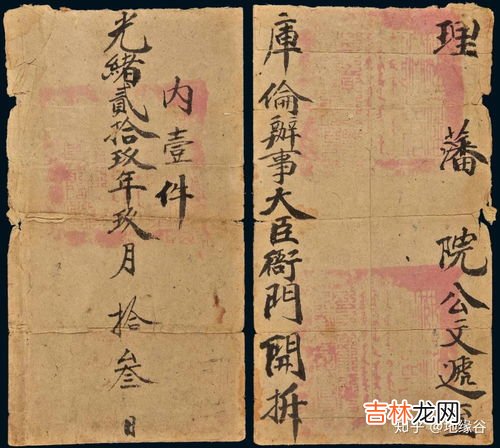 理藩院公文遞至
庫倫辦事大臣衙門開拆
内壹件
光緒貳拾玖年玖月拾叁日
知乎 @地缘谷
吉林龙网